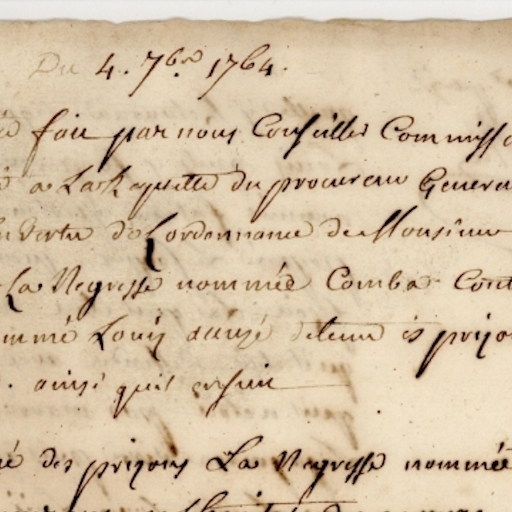 Du 4. 7bre 1764.
fait par nous Conseiller Commissa
a La Requette du procureur General
en vertu de Lordonnance de Monsieur
La Negresse nommée Comba Cont
ommé Louis accusé detenu es prison
. ainsi quil ensuit
né des prisons La Negresse nommée